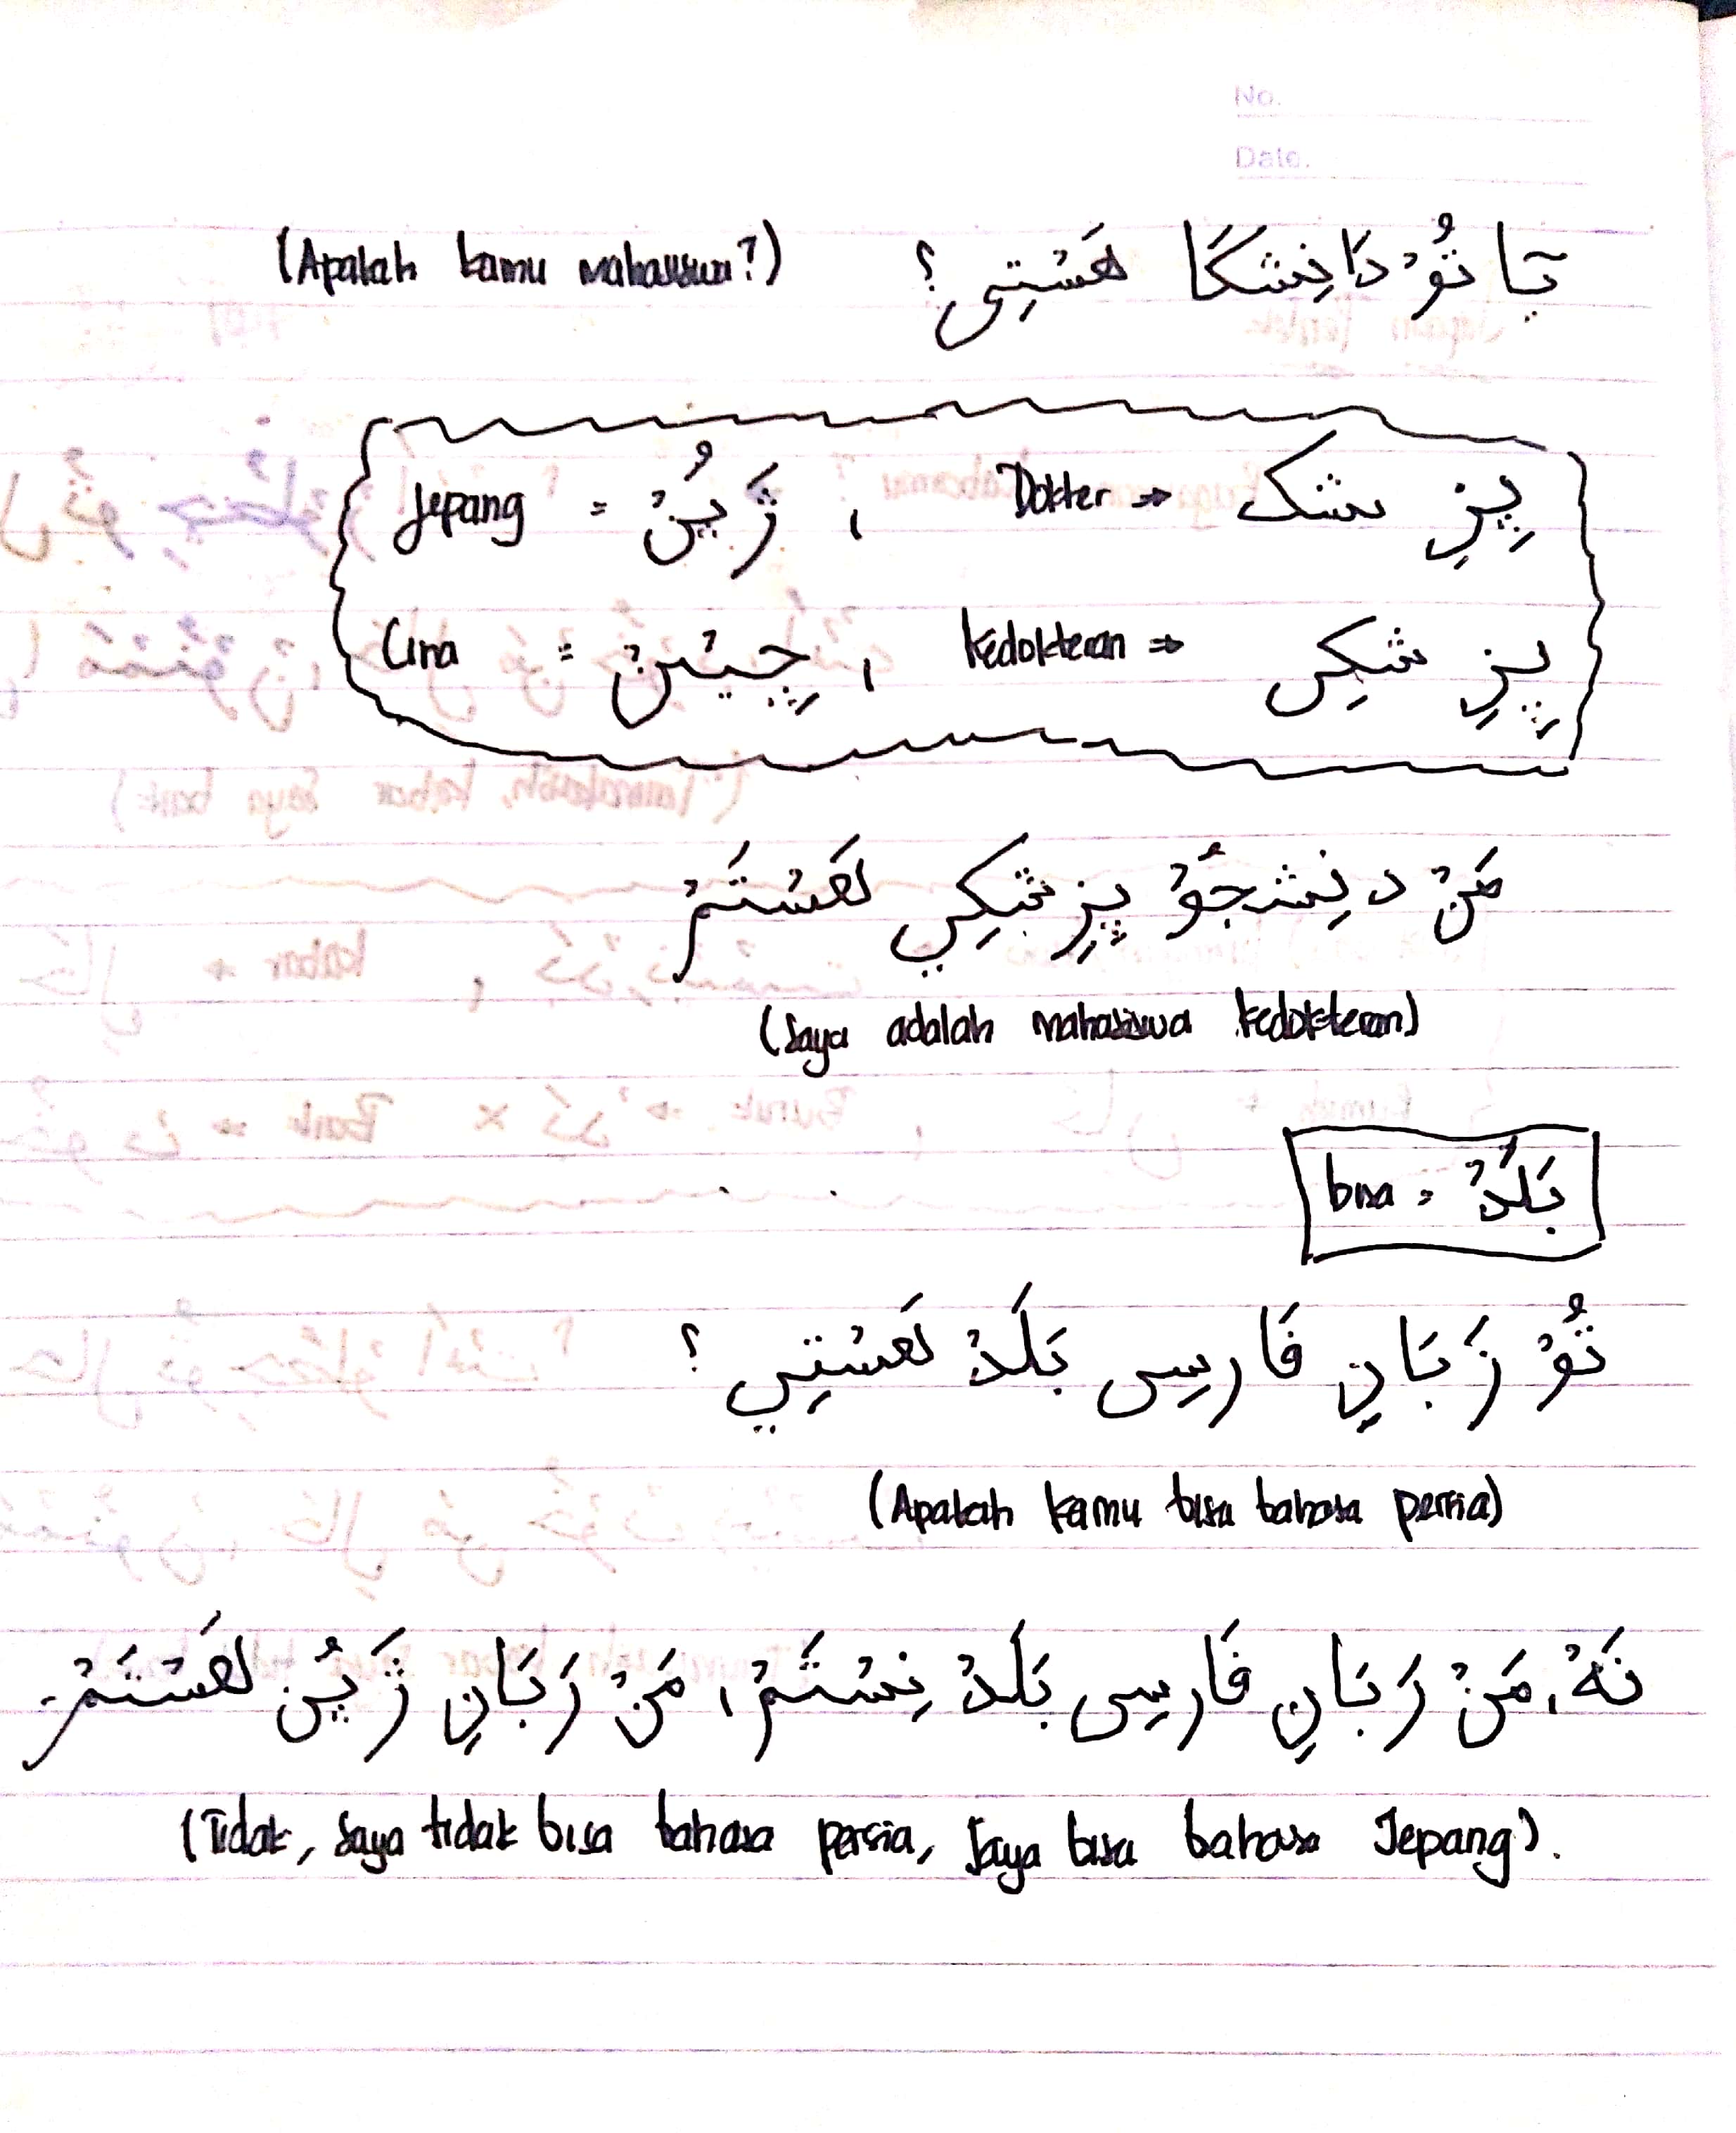 No.
Date.
يَا تُوْ دَانِشكَا هَسْتِى ؟ (Apakah kamu mahasiswa?)
پِزِ شك ⇒ Dokter ، ژَپُنْ = Jepang
پِزِ شكِى ⇒ kedokteran ، چِيْنْ = Cina
مَنْ دنِشجُوْ پِزِشكِي هَسْتَمْ
(Saya adalah mahasiswa kedokteran)
بَلَدْ = bisa
تُوْ زَبَانِ فَارسِى بَلَدْ هَسْتِي ؟
(Apakah kamu bisa bahasa persia)
نَهْ، مَنْ زَبَانِ فَارسِى بَلَدْ نِسْتَمْ، مَنْ زَبَانِ ژَپُن هَسْتَمْ.
(Tidak, saya tidak bisa bahasa persia, saya bisa bahasa Jepang).